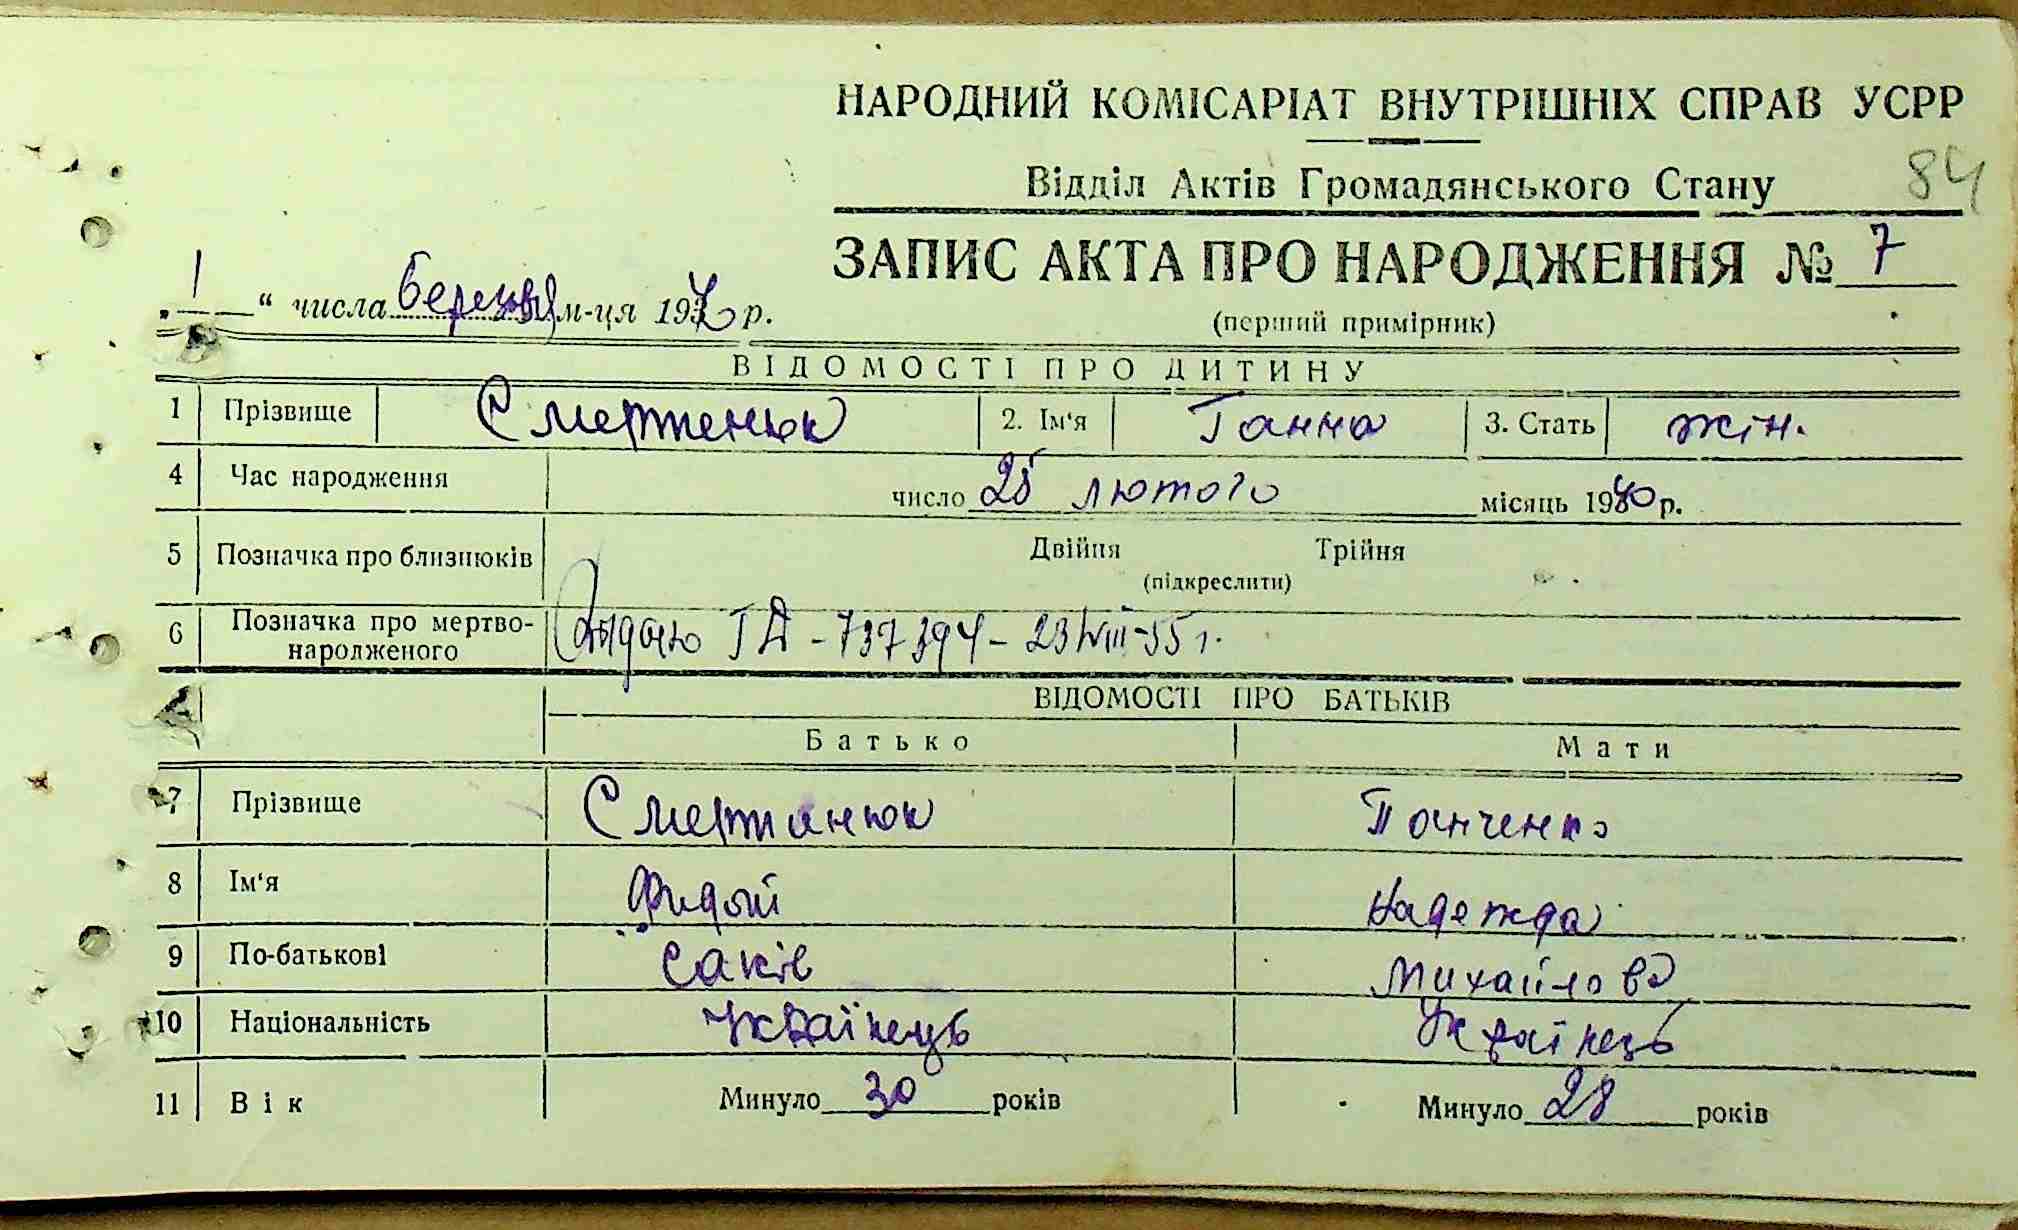 НАРОДНИЙ КОМІСАРІАТ ВНУТРІШНІХ СПРАВ УСРР
Відділ Актів Громадянського Стану 84
ЗАПИС АКТА ПРО НАРОДЖЕННЯ № 7
„ 1 “ числа березня м-ця 1940 р.
(перший примірник)
ВІДОМОСТІ ПРО ДИТИНУ
1 Прізвище Смертенюк 2. Ім'я Ганна 3. Стать жін.
4 Час народження число 28 лютого місяць 1940 р.
5 Позначка про близнюків Двійня Трійня
(підкреслити)
6 Позначка про мертво-
народженого
ГД - 737394 - 23/VIII-55 г.
ВІДОМОСТІ ПРО БАТЬКІВ
Батько Мати
7 Прізвище Смертанюк Панченко
8 Ім'я Надежда
9 По-батькові Саків Михайлова
10 Національність Українець Українець
11 Вік Минуло 30 років Минуло 28 років